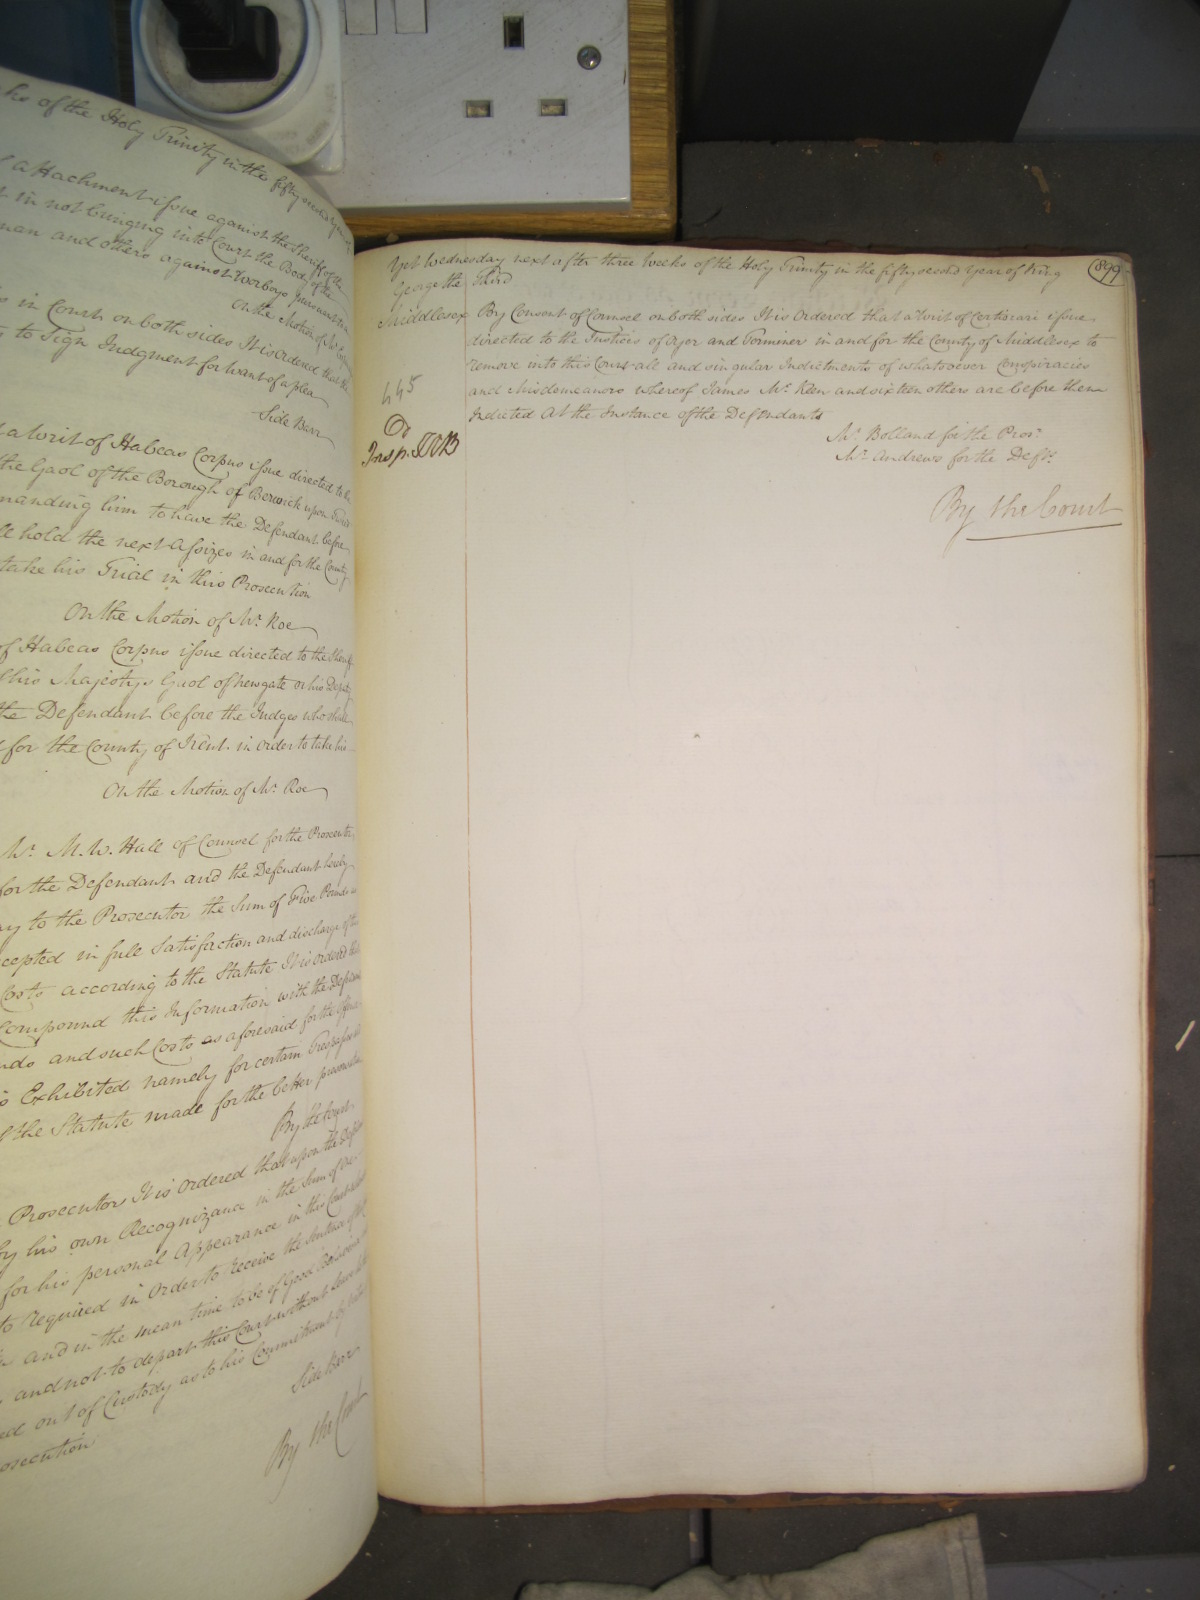 ks of the Holy Trinity in the fifty second year
attachment issue against the Sheriff of the
in not bringing into Court the Body of the
man and others against Worboys pursuant
On the Motion of Mr
in Court on both sides It is Ordered that the
to Sign Judgment for want of a plea
Side Barr
a Writ of Habeas Corpus issue directed to the
the Gaol of the Borough of Berwick upon Tweed
manding him to have the Defendant before
hold the next Assizes in and for the County
take his Trial in this Prosecution
On the Motion of Mr. Roe
of Habeas Corpus issue directed to the Sheriff
his Majestys Gaol of Newgate or his Deputy
the Defendant before the Judges who shall
for the County of Kent in order to take his
On the Motion of Mr. Roe
Mr. M. W. Hall of Counsel for the Prosecutor
for the Defendant and the Defendant hereby
ay to the Prosecutor the Sum of Five Pounds
cepted in full Satisfaction and discharge of the
Costs according to the Statute It is Ordered that
Compound this Information with the Defendant
nds and such Costs as aforesaid for the Offence
is Exhibited namely for certain Trespasses
the Statute made for the better preservation
By the Court
Prosecutor It is Ordered that upon the Defendant
by his own Recognizance in the Sum of One
for his personal Appearance in this Court
to required in Order to receive the Sentence of the
and in the mean time to be of Good Behaviour
and not to depart this Court without leave
ed out of Custody as to his Commitment by
osecution
Side Barr
By the Court
Yet Wednesday next after three Weeks of the Holy Trinity in the fifty second Year of King
George the Third
899
Middlesex By Consent of Counsel on both sides It is Ordered that a Writ of Certiorari issue
directed to the Justices of Oyer and Terminer in and for the County of Middlesex to
remove into this Court all and singular Indictments of whatsoever Conspiracies
and Misdemeanors whereof James Mc. Keen and sixteen others are before them
Indicted At the Instance of the Defendants
445
Dr
Insp.
Mr. Bolland for the Pros.r
Mr. Andrews for the Defts.
By the Court